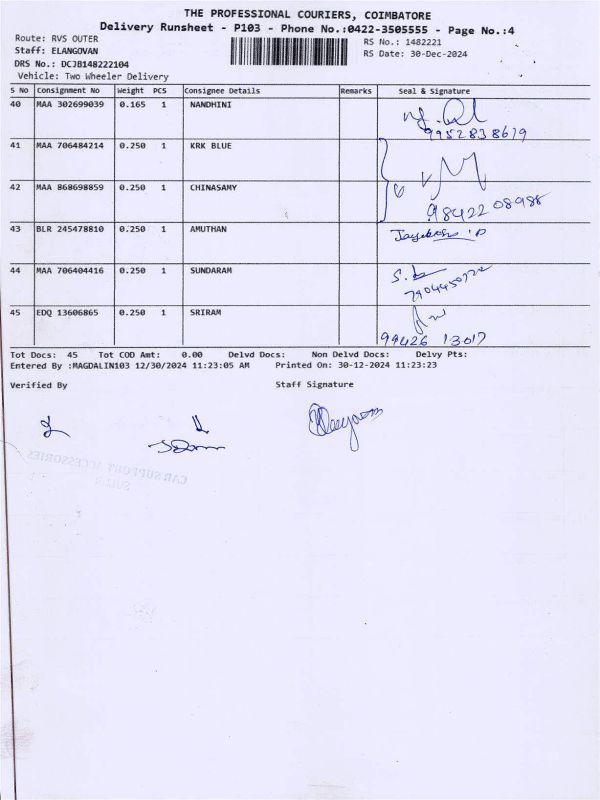 THE PROFESSIONAL COURIERS, COIMBATORE
Delivery Runsheet - P103 - Phone No.:0422-3505555 - Page No.:4
Route: RVS OUTER
RS No.: 1482221
Staff: ELANGOVAN
RS Date: 30-Dec-2024
DRS No.: DCJB148222104
Vehicle: Two Wheeler Delivery
S No Consignment No Weight PCS Consignee Details Remarks Seal & Signature
40 MAA 302699039 0.165 1 NANDHINI
9952838619
41 MAA 706484214 0.250 1 KRK BLUE
42 MAA 868698859 0.250 1 CHINASAMY
98422 08988
43 BLR 245478810 0.250 1 AMUTHAN
44 MAA 706404416 0.250 1 SUNDARAM
45 EDQ 13606865 0.250 1 SRIRAM
99426 13017
Tot Docs: 45 Tot COD Amt: 0.00 Delvd Docs: Non Delvd Docs: Delvy Pts:
Entered By :MAGDALIN103 12/30/2024 11:23:05 AM Printed On: 30-12-2024 11:23:23
Verified By Staff Signature
CAR SUPPORT ACCESSORIES